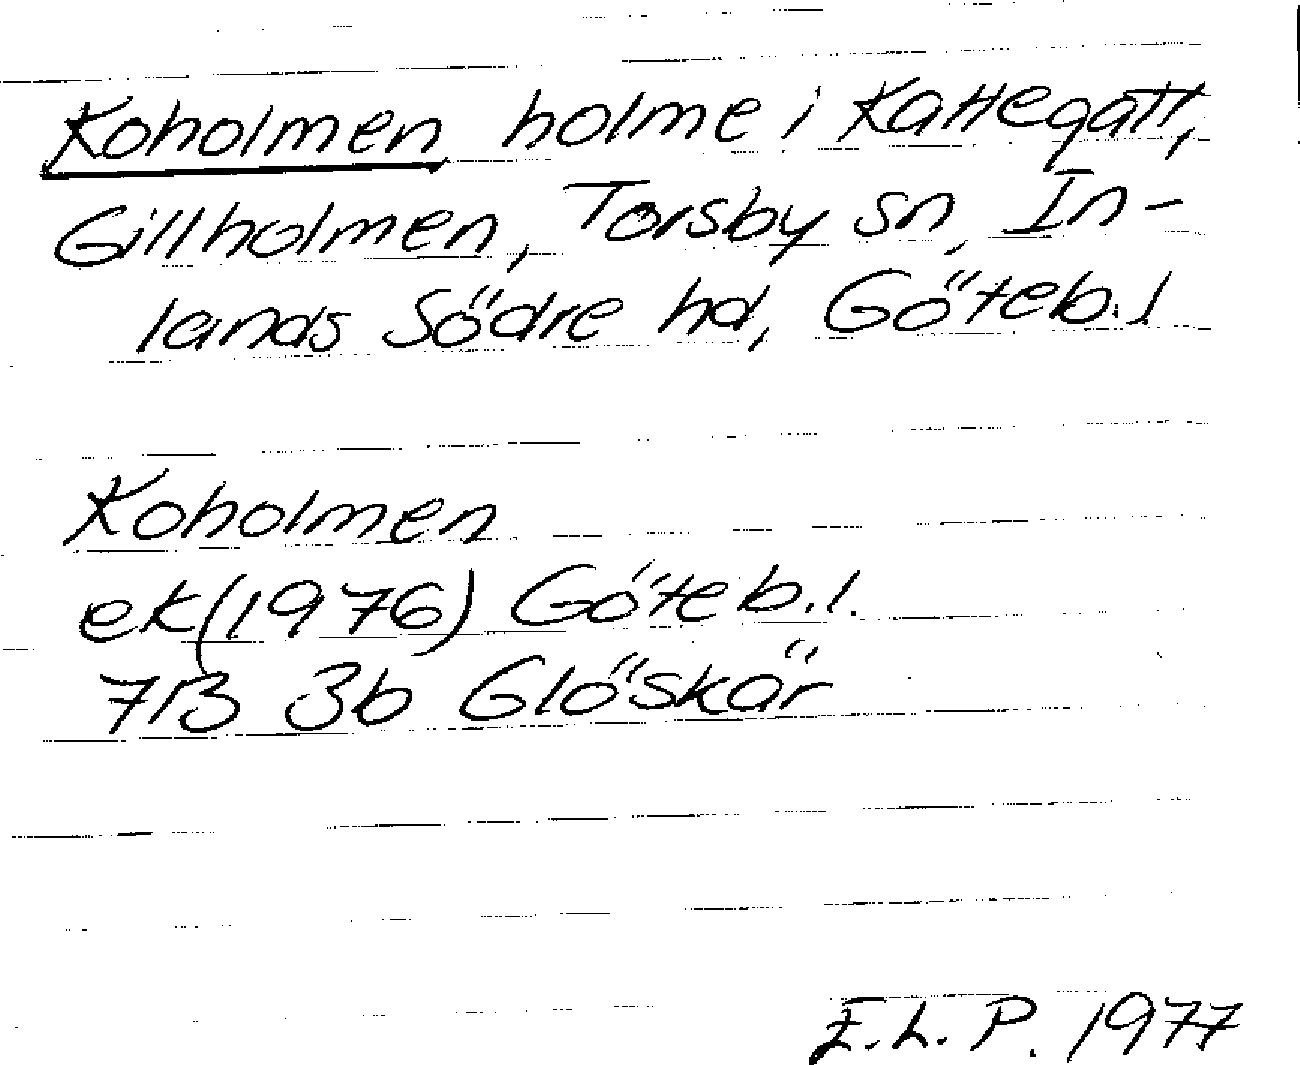 Koholmen holme i Kattegatt,
Gillholmen, Torsby sn, In-
lands Södre hd, Göteb.l
Koholmen
ek(1976) Göteb.l.
7B 3b Glöskär
E.L.P. 1977